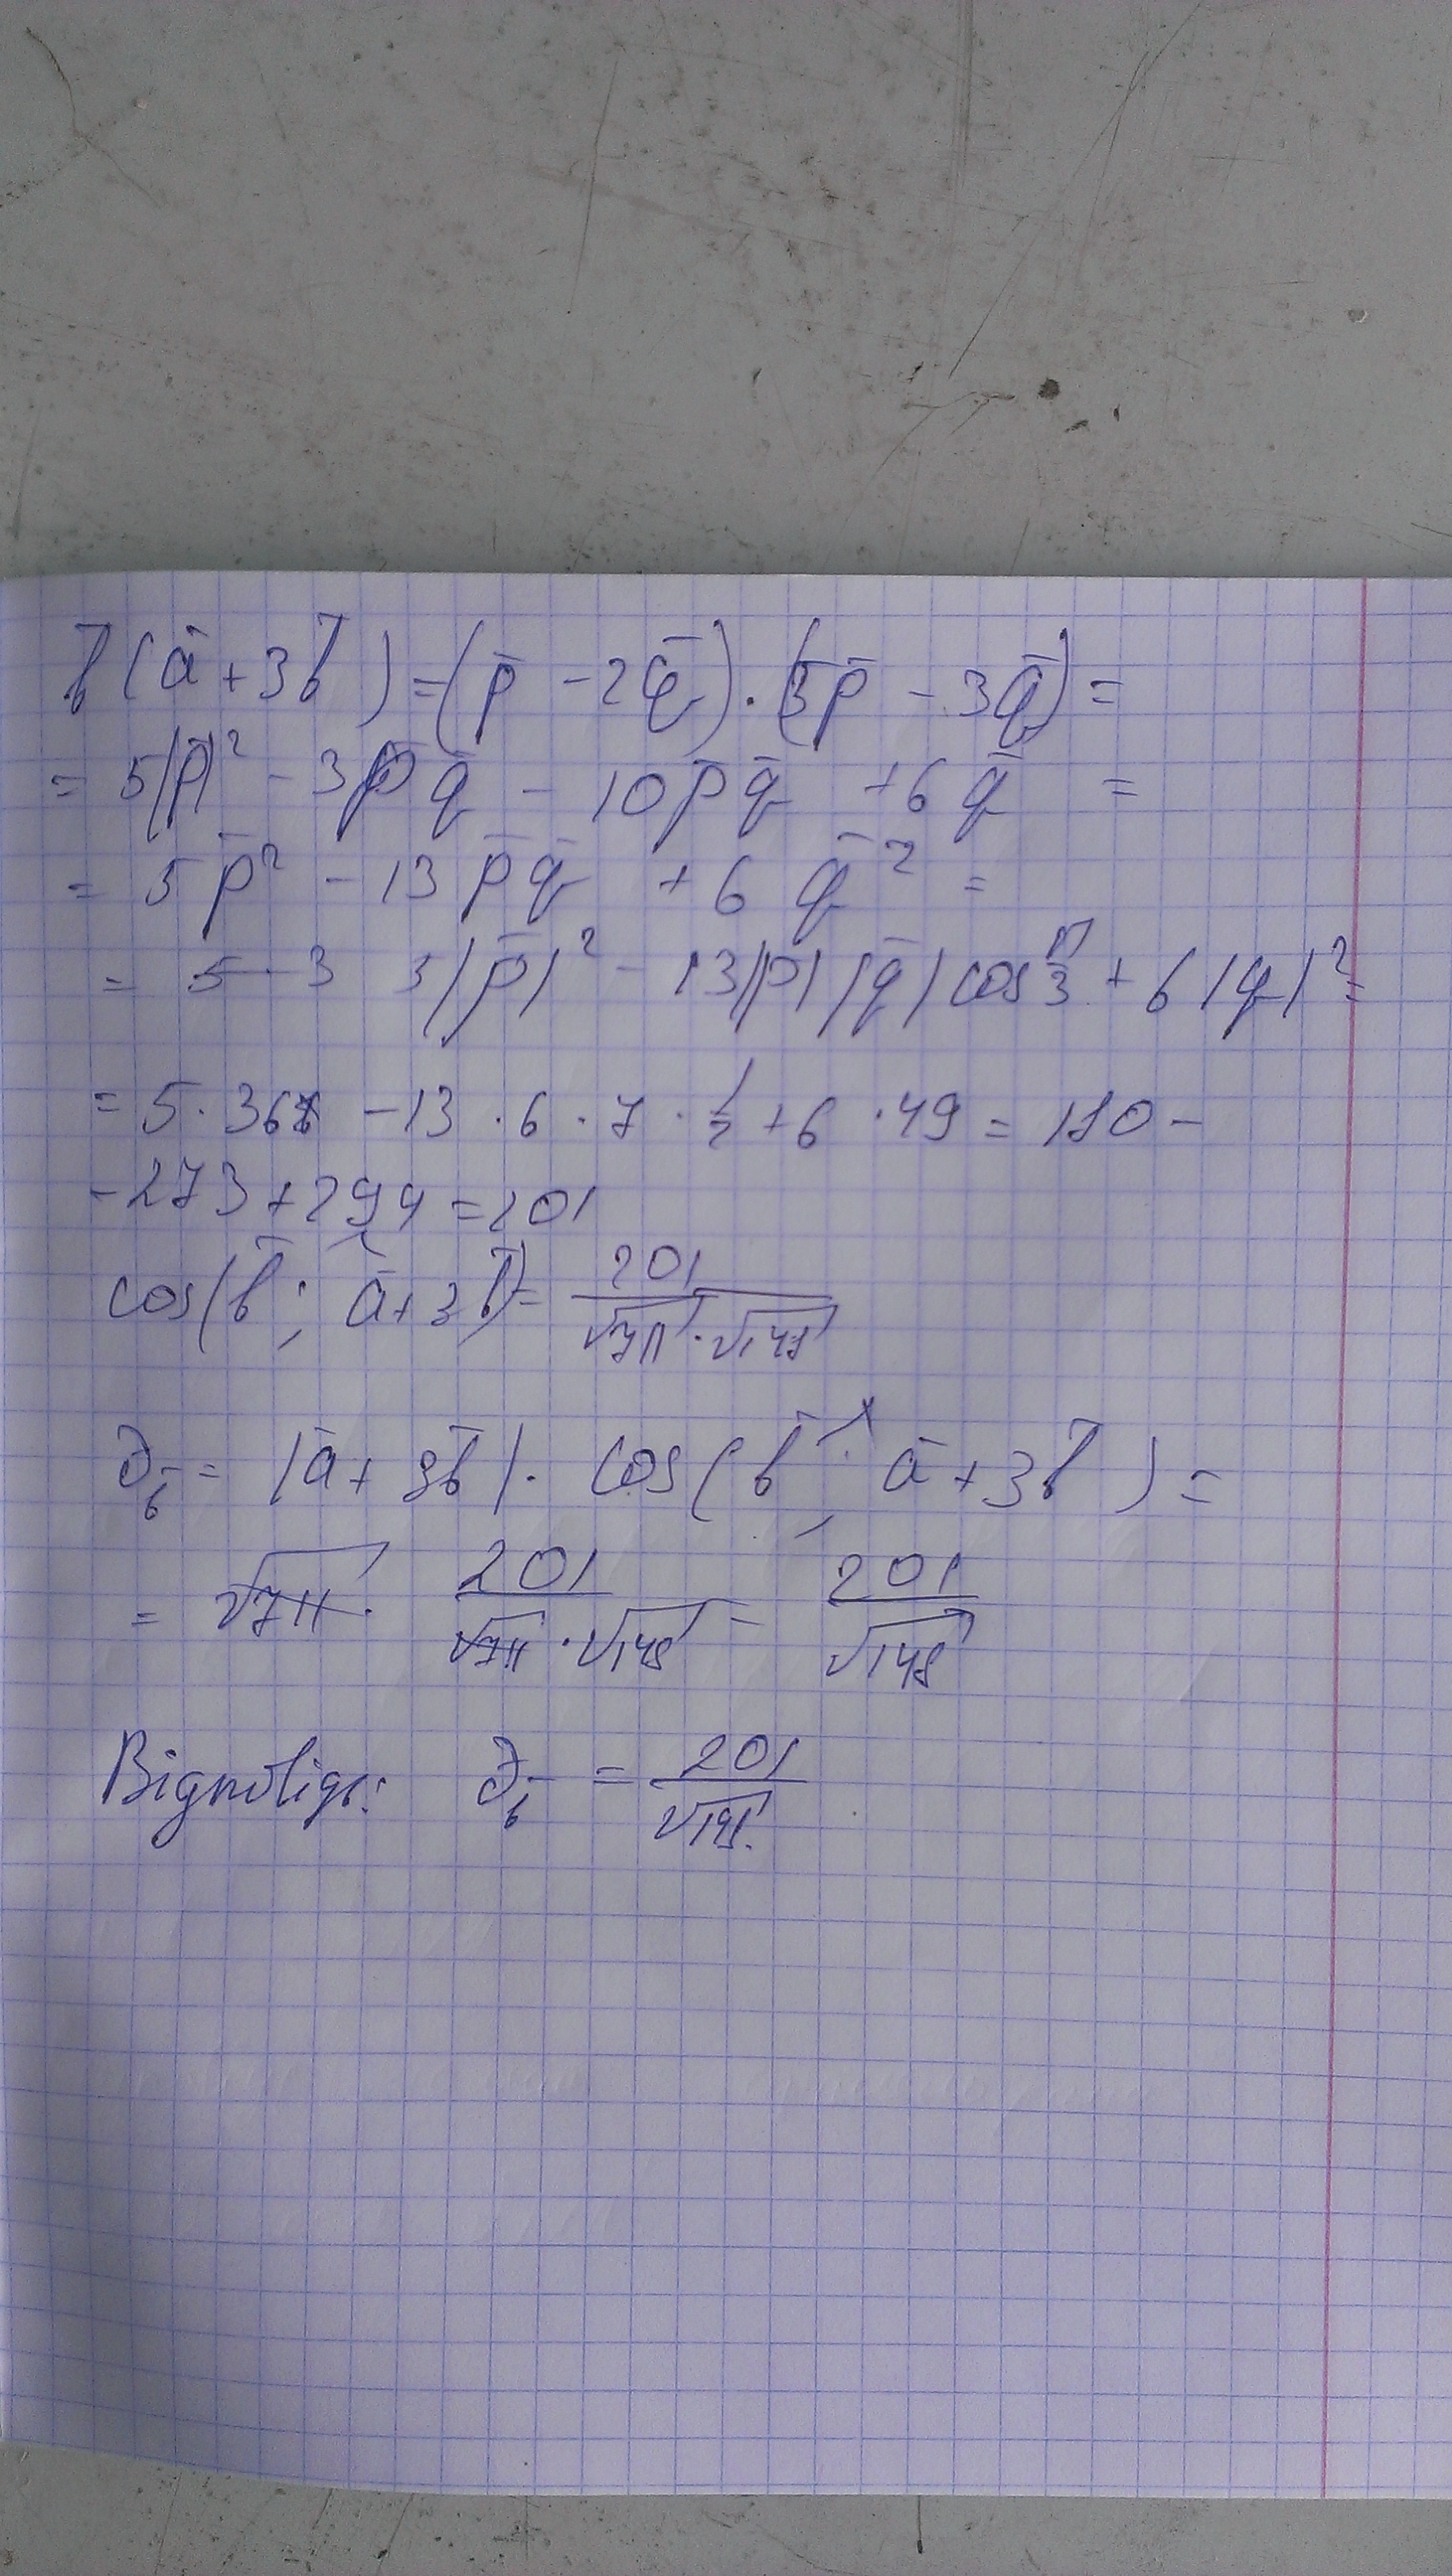 b̄(ā+3b̄)=(p̄-2q̄)·(5p̄-3q̄)=
=5|p̄|²-3p̄q̄-10p̄q̄+6q̄=
=5p̄²-13p̄q̄+6q̄²=
= 5|p̄|²-13|p̄||q̄|cos π/3+6|q|²=
=5·36-13·6·7·1/2+6·49=180-
-273+294=201
cos(b̄; ā+3b̄)=201/(√711·√148)
∂b̄=|ā+3b̄|·cos(b̄, ā+3b̄)=
=√711·201/(√711·√148)=201/√148
Відповідь: ∂b̄=201/√148.